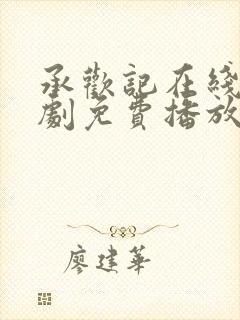 承歡記在綫
劇免費播放
廖建華